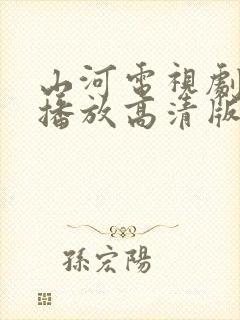 山河電視劇
播放高清版
孫宏陽